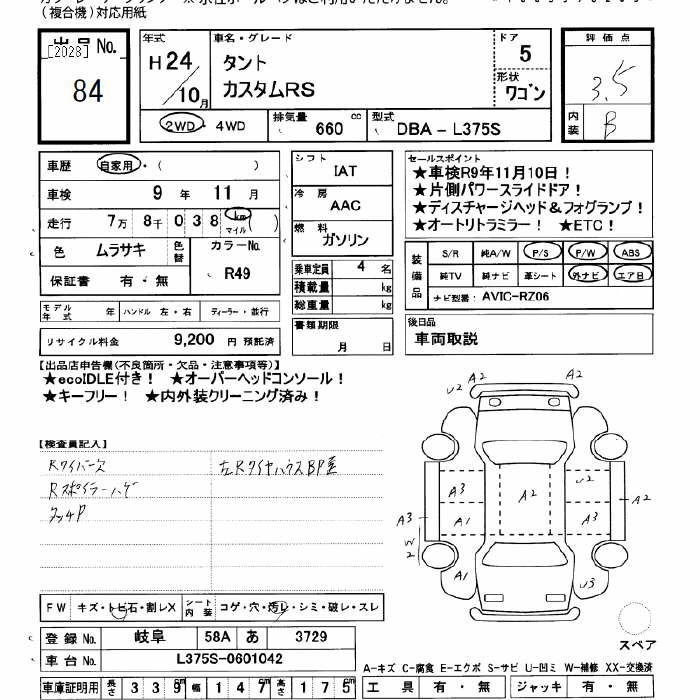 (複合機)対応用紙
出品No.
[2028]
84
年式
H24/10月
車名・グレード
タント
カスタムRS
ドア
5
形状
ワゴン
評価点
3.5
内装
B
2WD・4WD
排気量
660 cc
型式
DBA-L375S
車歴 自家用・( )
車検 9年 11月
走行 7万 8千 038 km マイル ( )
色 ムラサキ 色替 カラーNo. R49
保証書 有・無
モデル年式 年 ハンドル 左・右 ディーラー・並行
リサイクル料金 9,200 円 預託済
シフト
IAT
冷房
AAC
燃料
ガソリン
乗車定員 4 名
積載量 kg
総重量 kg
書類期限
月 日
セールスポイント
★車検R9年11月10日!
★片側パワースライドドア!
★ディスチャージヘッド&フォグランプ!
★オートリトラミラー! ★ETC!
装備品
S/R 純A/W P/S P/W ABS
純TV 純ナビ 革シート 外ナビ エアB
ナビ型番: AVIC-RZ06
後日品
車両取説
【出品店申告欄(不良箇所・欠品・注意事項等)】
★ecoIDLE付き! ★オーバーヘッドコンソール!
★キーフリー! ★内外装クリーニング済み!
【検査員記入】
Rワイパー欠
Rスポイラーハゲ
タッチP
左RタイヤハウスBP歪
U2 A2 A2
A3 A2 U2
A3 A1 A3 A2
W2
A1 U3
スペア
FW キズ・トビ石・割レX シート内装 コゲ・穴・汚レ・シミ・破レ・スレ
登録No. 岐阜 58A あ 3729
車台No. L375S-0601042
車庫証明用 長さ 339cm 幅 147cm 高さ 175cm
A-キズ C-腐食 E-エクボ S-サビ U-凹ミ W-補修 XX-交換済
工具 有・無 ジャッキ 有・無